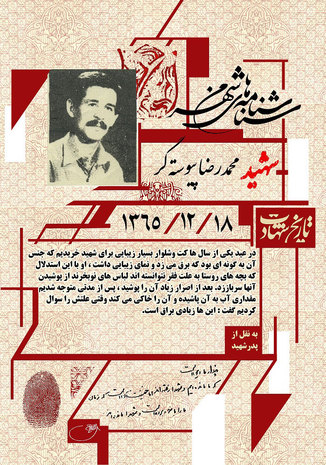 شناسنامه های شهر من
شهید محمدرضا پیوسته گر
تاریخ شهادت
۱۳۶۵/۱۲/۱۸
در عید یکی از سال ها کت وشلوار بسیار زیبایی برای شهید خریدیم که جنس
آن به گونه ای بود که برق می زد و نمای زیبایی داشت ، او با این استدلال
که بچه های روستا به علت فقر نتوانسته اند لباس های نوبخرند از پوشیدن
آنها سرباززد. بعد از اصرار زیاد آن را پوشید ، پس از مدتی متوجه شدیم
مقداری آب به آن پاشیده و آن را خاکی می کند وقتی علتش را سوال
کردیم گفت : این ها زیادی براق است.
به نقل از
پدرشهید